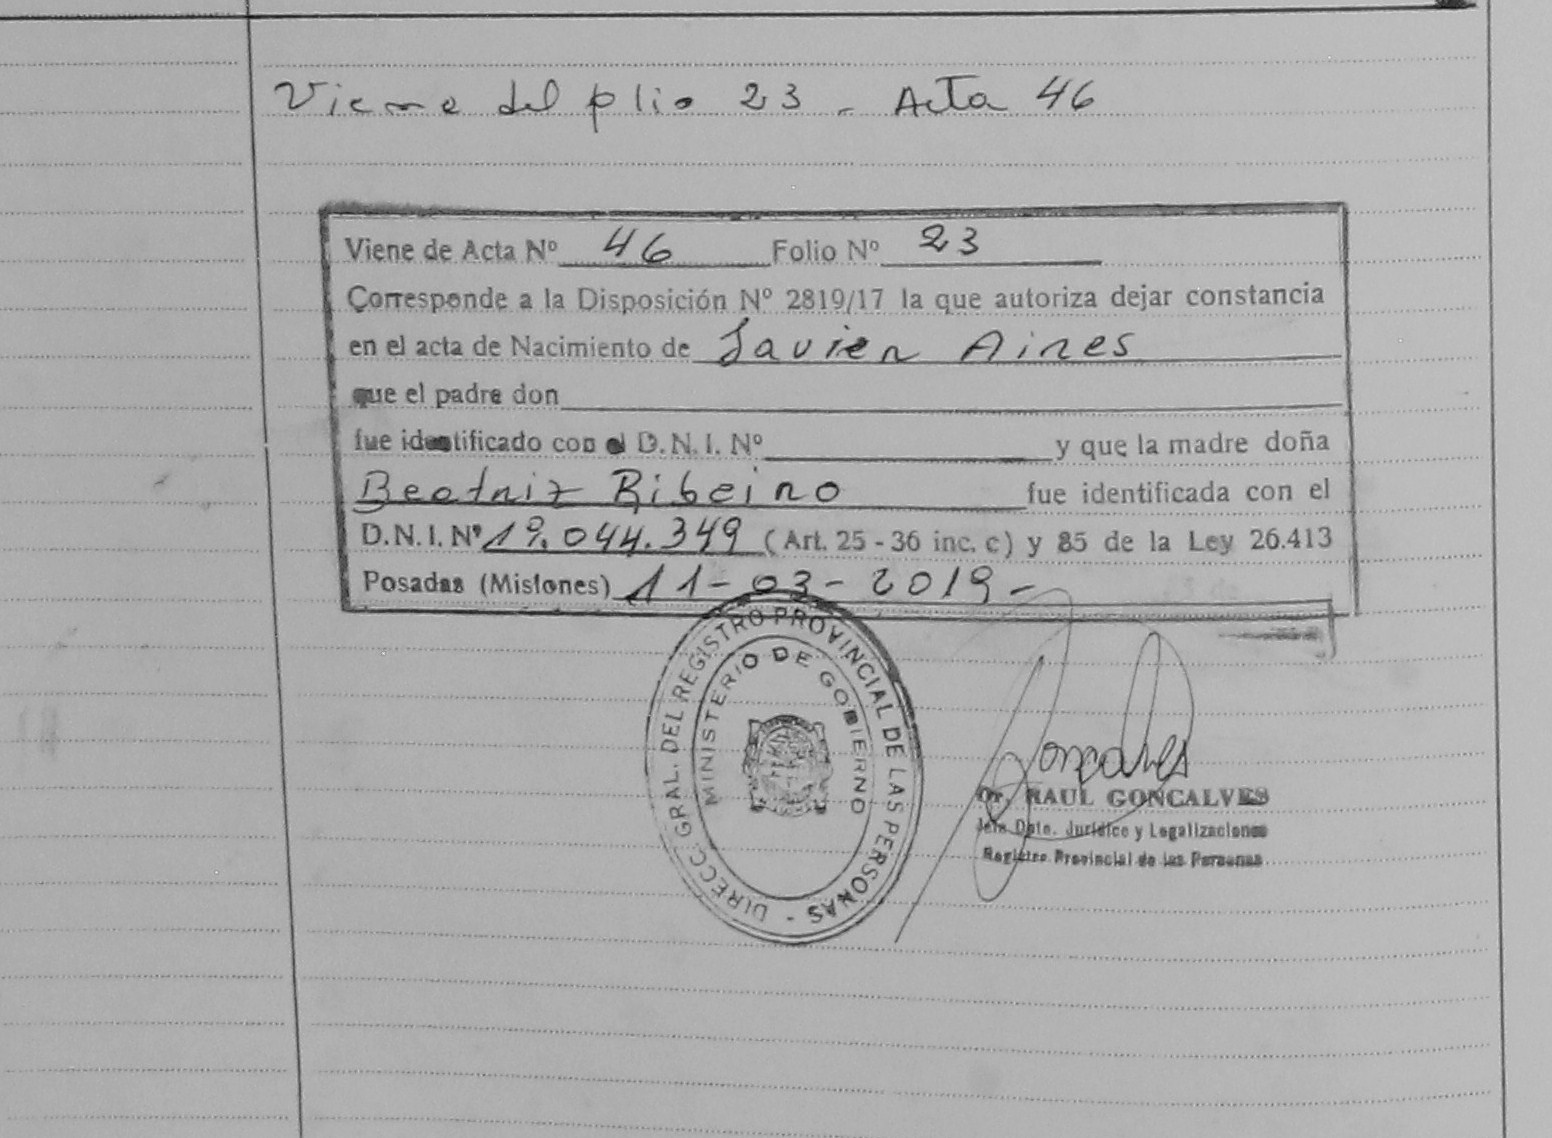 Viene del folio 23 - Acta 46
Viene de Acta Nº 46 Folio Nº 23
Corresponde a la Disposición Nº 2819/17 la que autoriza dejar constancia
en el acta de Nacimiento de Javier Aires
que el padre don
fue identificado con el D.N.I. Nº y que la madre doña
Beatriz Ribeiro fue identificada con el
D.N.I. Nº 19.044.349 (Art. 25 - 36 inc. c) y 85 de la Ley 26.413
Posadas (Misiones) 11-03-2019-
DIRECC. GRAL. DEL REGISTRO PROVINCIAL DE LAS PERSONAS -
MINISTERIO DE GOBIERNO
Goncalves
Dr. RAUL GONCALVES
Jefe Dpto. Jurídico y Legalizaciones
Registro Provincial de las Personas